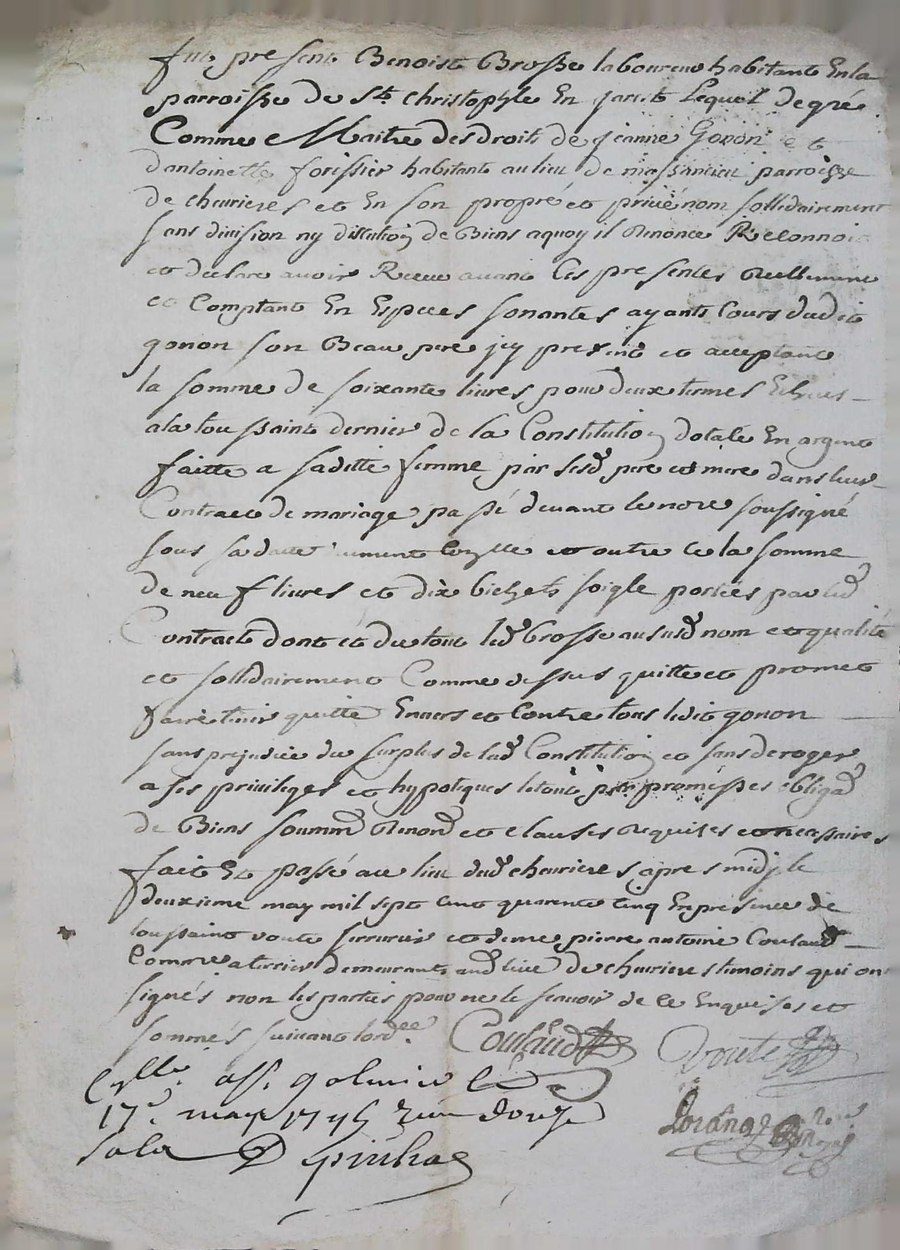 fut present Benoist Brosse laboureur habitant En la
parroisse de St Christophle En jarest Lequel de gré
Comme Maitre des droits de jeanne Gonon et
dantoinette forissier habitants au lieu de parroisse
de cheurieres et En son propre et privé nom sollidairement
sans division ny discution de Biens aquoy il Renonce Reconnoit
et declare avoir Receu avant Ces presentes reellement
et Comptant En Especes sonantes ayants Cours dudit
gonon son Beau pere jcy present et acceptant
la somme de soixante livres pour deux termes Echeus
ala toussaint dernier de la Constitution dotale En argent
faitte a saditte femme par sesd pere et mere dans leur
Contract de mariage passé devant le nore soussigné
sous sa datte et outre ce la somme
de neuf livres et dix bichets soigle portées par led
Contract dont et du tout led Brosse aususd nom et qualité
et sollidairement Comme dessus quitte et promet
faire tenir quitte Envers et Contre tous ledit gonon
sans prejudice du surplus de lad Constitution et sans deroger
a ses privileges et hypotiques le tout par promesses obligaõ
de Biens soummõ Renonõ et clauses requises et necessaires
fait Et passé au lieu dud cheurieres apres midy le
deuxieme may mil sept cent quarente cinq En presence de
toussaint voute serrurier et de me pierre antoine Coulaud
Comme demeurants aud lieu de cheurieres temoins qui ont
signés non les parties pour ne le scavoir de ce Enquises et
sommés suivant lord.ce Coulaud Voute
Cllé a St Galmier le
17e may 1745 Reçu douze
sols